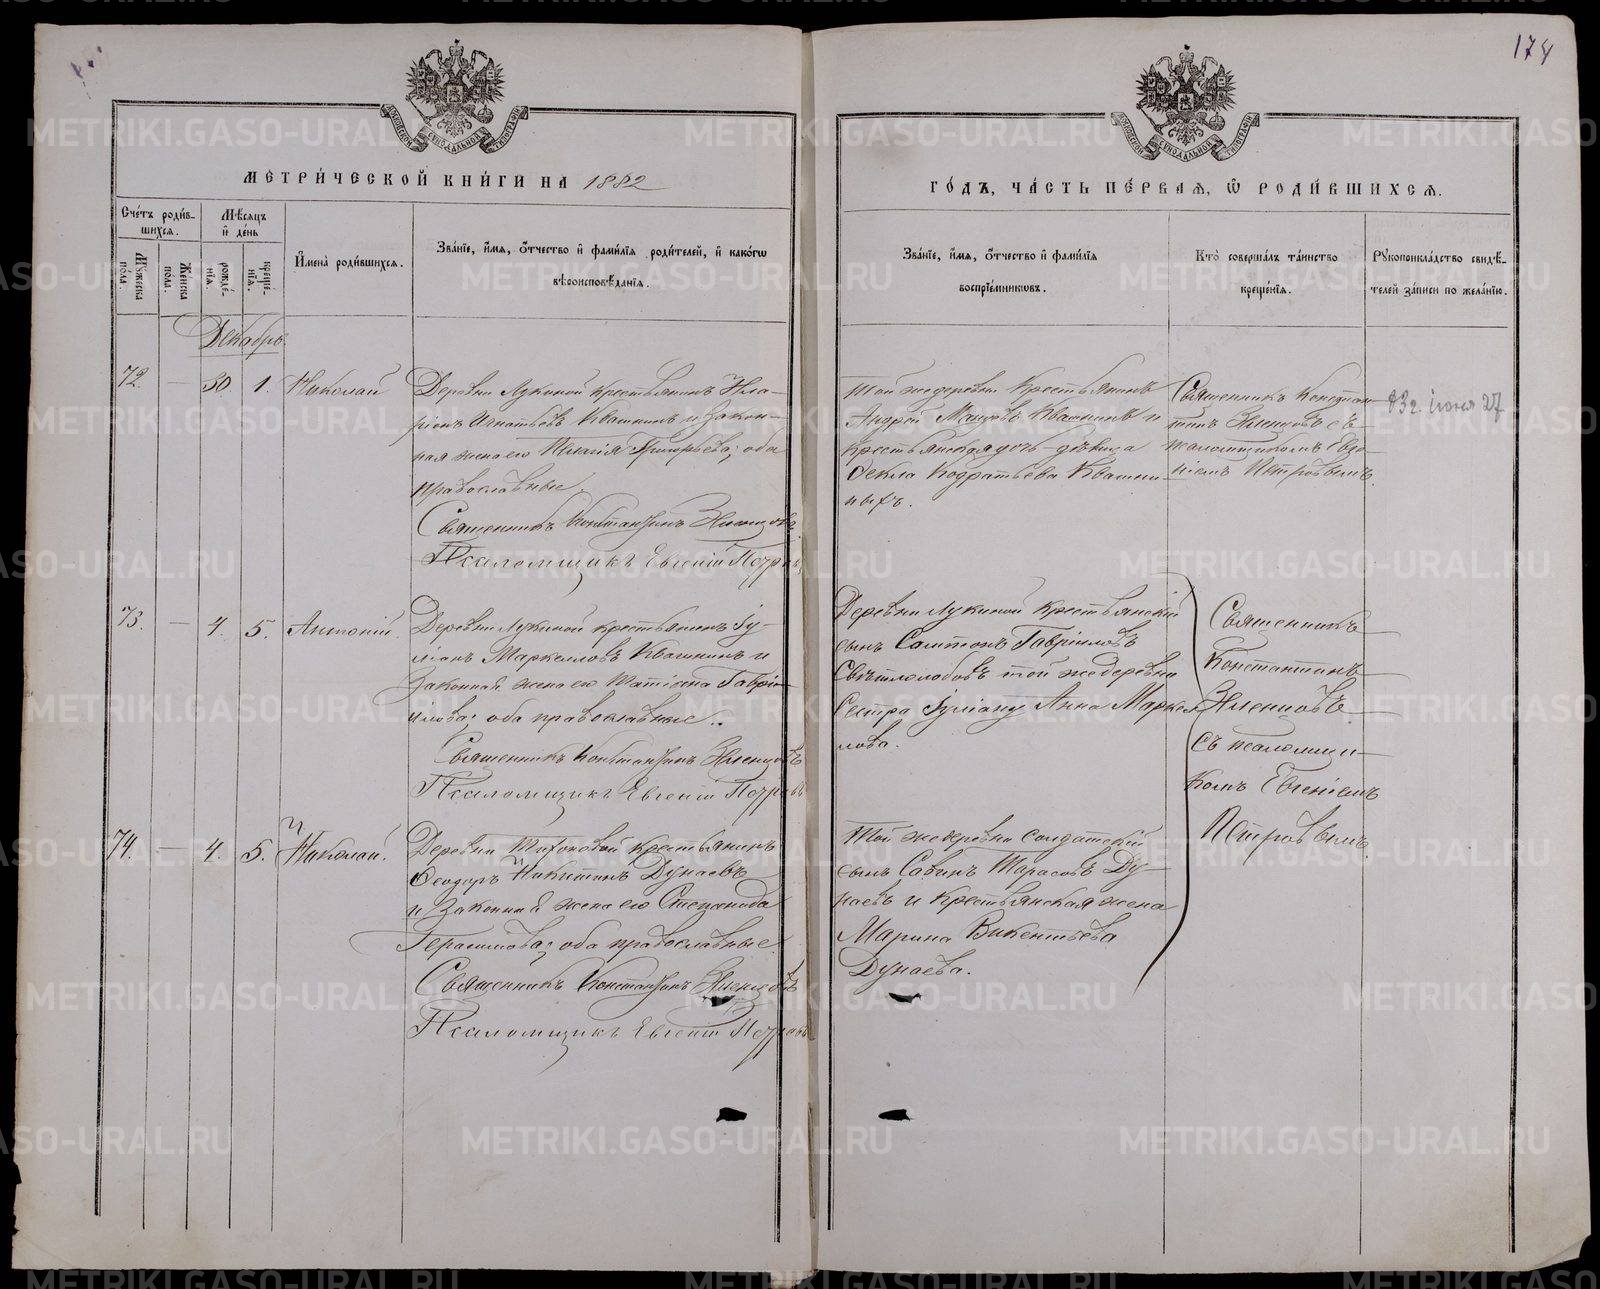 174
МОСКОВСКОЙ СѴНОДАЛЬНОЙ ТИПОГРАФІИ
МОСКОВСКОЙ СѴНОДАЛЬНОЙ ТИПОГРАФІИ
МЕТРИ́ЧЕСКОЙ КНИ́ГИ НА 1882
ГО́ДЪ, ЧА́СТЬ ПЕ́РВАЯ, Ѡ РОДИ́ВШИХСЯ.
Сче́тъ роди́в-
шихся.
Мѣсяцъ
и де́нь
Му́жеска по́ла.
Же́нска по́ла.
рожде́-
нія.
креще́-
нія.
Имена̀ роди́вшихся.
Зва́ніе, и́мя, о́тчество и фами́лія роди́телей, и како́гѡ
вѣроисповѣ́данія.
Зва́ніе, и́мя, о́тчество и фами́лія
воспріе́мниковъ.
Кто̀ соверша́лъ та́инство
креще́нія.
Рукоприкла́дство свидѣ́-
телей за́писи по жела́нію.
Декабрь.
72. — 30. 1. Николай
Деревни Лукиной крестьянинъ Ила-
ріонъ Игнатьевъ Квашнинъ и закон-
ная жена его Григорьева; оба
православные.
Священникъ Константинъ
Псаломщикъ Евгеній Петровъ
Той же деревни Крестьянинъ
Андрей Квашнинъ и
крестьянская дочь девица
Фекла Кодратьева Квашни-
ныхъ.
Священникъ Констан-
тинъ съ
псаломщикомъ Евге-
ніемъ Петровымъ.
83 г. Іюня 27
73. — 4. 5. Антоній.
Деревни Лукиной крестьянинъ Іу-
ліанъ Маркелловъ Квашнинъ и
законная жена его Татіана Гаврі-
илова; оба православные.
Священникъ Константинъ
Псаломщикъ Евгеній Петровъ
Деревни Лукиной крестьянскій
сынъ Гавріиловъ
Свѣтлолобовъ той же деревни
Сестра Іуліану Анна Маркел-
лова.
Священникъ
Константинъ
съ псаломщи-
комъ Евгеніемъ
Петровымъ.
74. — 4. 5. Николай.
Деревни крестьянинъ
Феодоръ Никитинъ Дунаевъ
и Законная жена его Степанида
Герасимова; оба православные.
Священникъ Константинъ
Псаломщикъ Евгеній Петровъ
Той же деревни солдатскій
сынъ Савинъ Тарасовъ Ду-
наевъ и крестьянская жена
Марина Викентьева
Дунаева.
METRIKI.GASO-URAL.RU